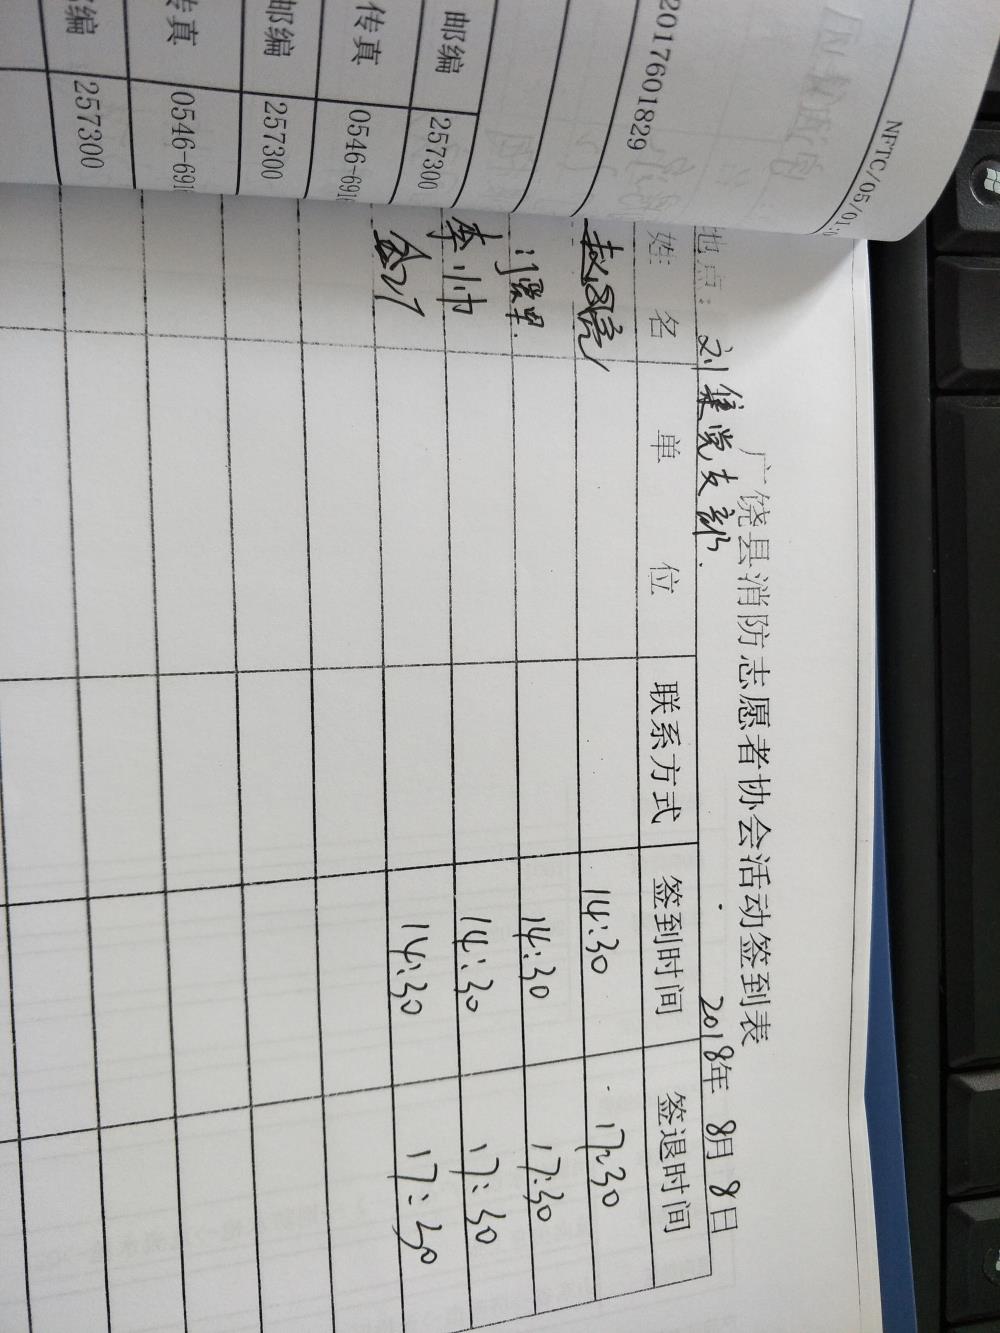 NFTC/05/01
201760182９
邮编 257300
传真 0546-691
邮编 257300
传真 0546-691
编 257300
广饶县消防志愿者协会活动签到表
地点：刘集党支部. 2018年 8月 8日
姓名 单位 联系方式 签到时间 签退时间
14:30 17:30
14:30 17:30
李帅 14:30 17:30
14:30 17:30